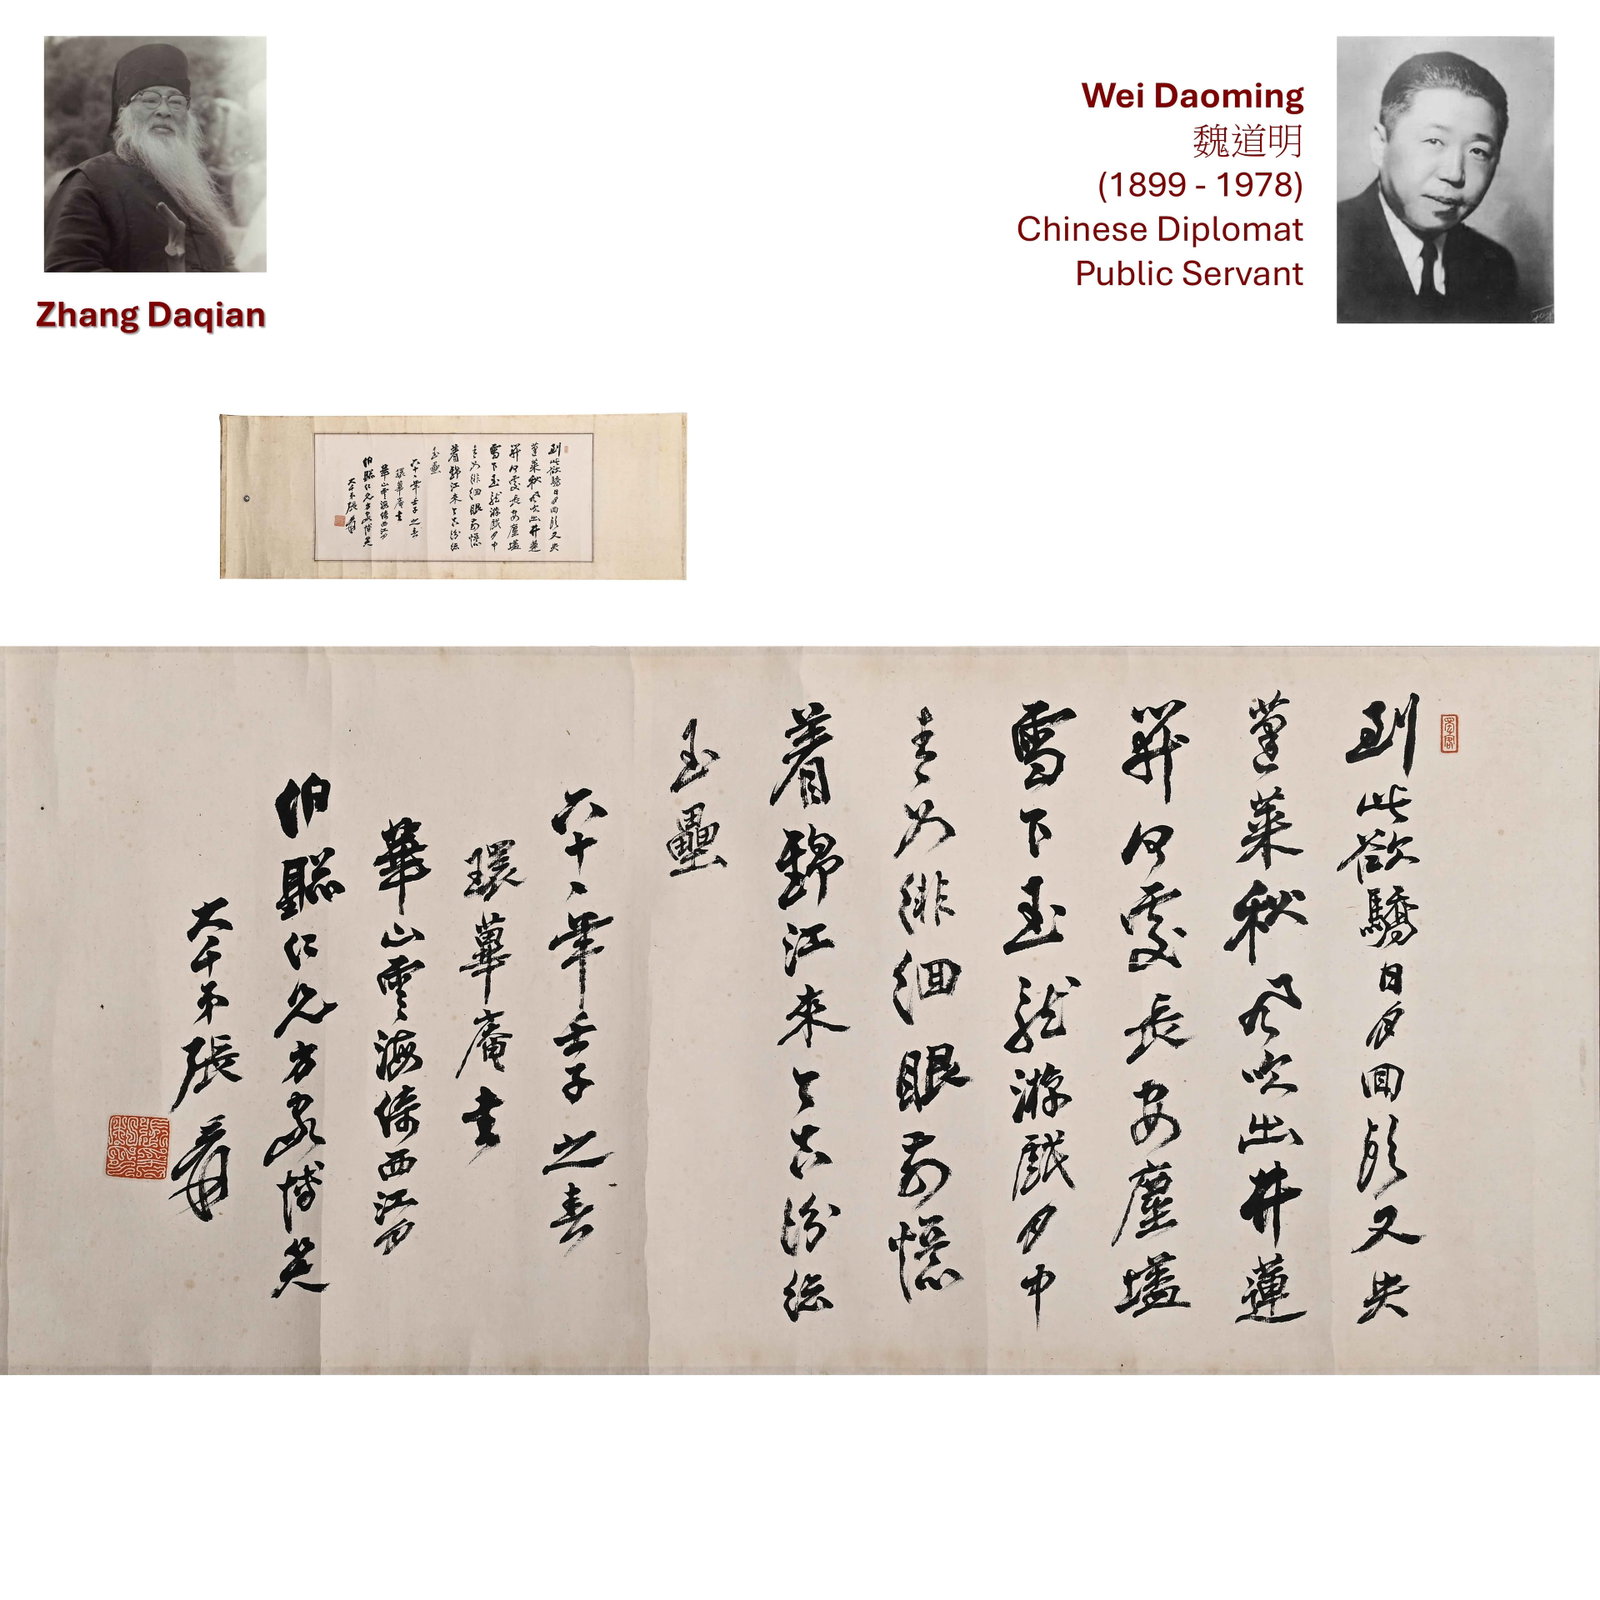 Zhang Daqian
Wei Daoming
魏道明
(1899 - 1978)
Chinese Diplomat
Public Servant
到此欲驕日月回頭又失
蓬萊秋風吹出井蓮
開何處長安塵壒
雪下玉龍游戲月中
青女徘徊眼前憶
著錦江來今古紛紜
玉壘
六十一年壬子之春
環蓽庵書
華山雲海倚西江月
伯聰仁兄方家博笑
大千弟張爰